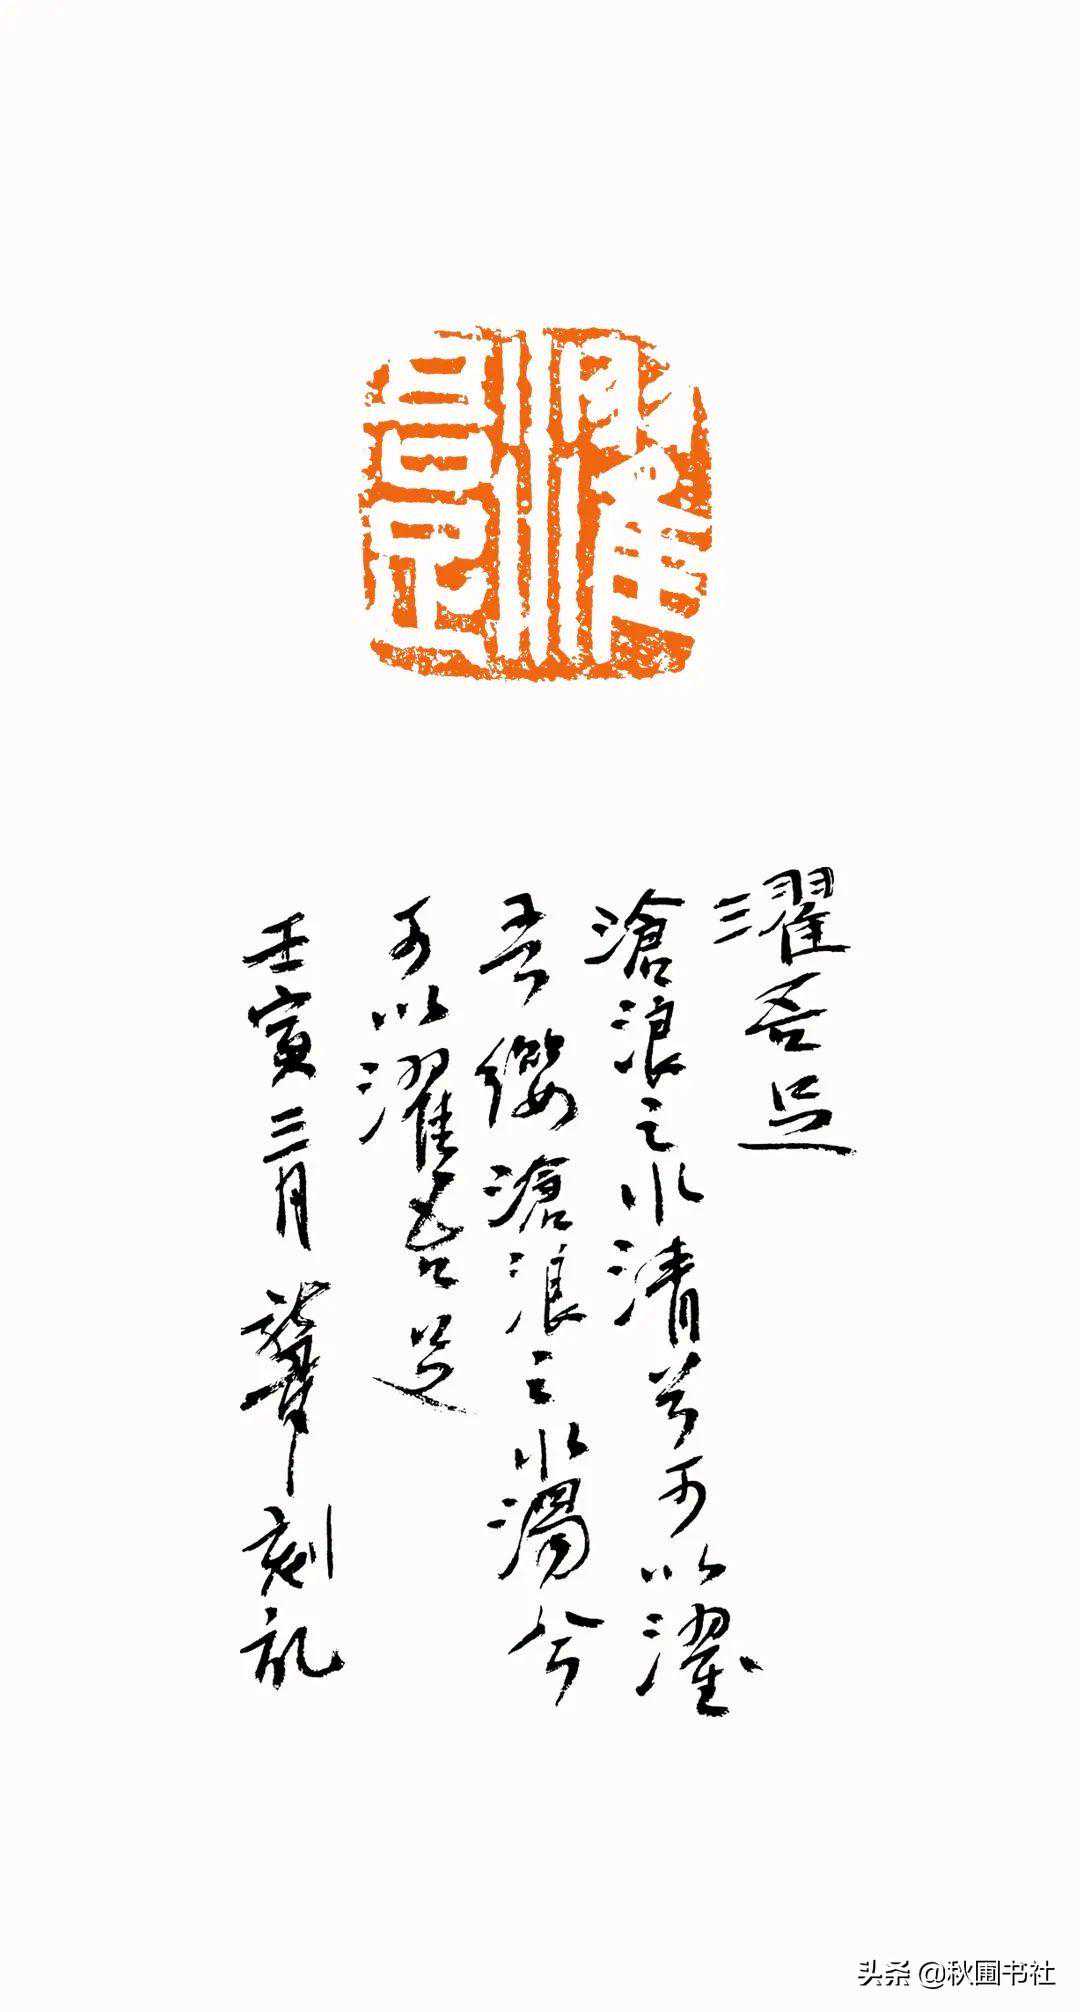 濯吾足
濯吾足
滄浪之水清兮可以濯
吾纓滄浪之水濁兮
可以濯吾足
壬寅三月刻記
头条 @秋圃书社